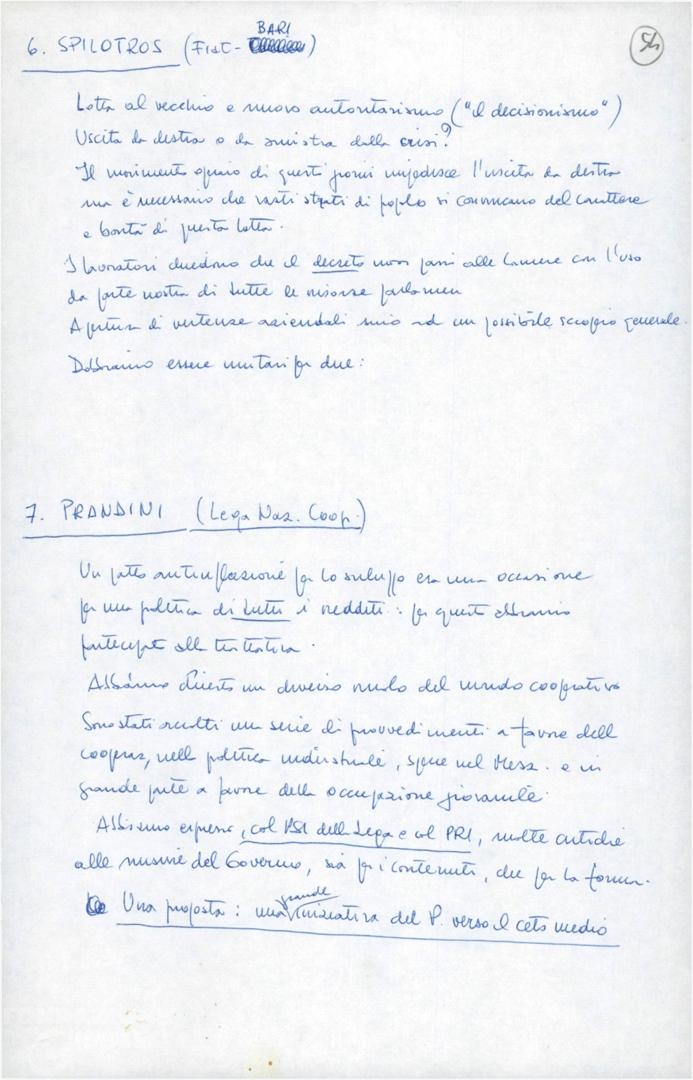 54
BARI
6. SPILOTROS (Fiat- )
Lotta al vecchio e nuovo autoritarismo ("il decisionismo")
Uscita da destra o da sinistra dalla crisi?
Il movimento operaio di questi giorni impedisce l'uscita da destra
ma è necessario che vasti strati di popolo si convincano del carattere
e bontà di questa lotta.
I lavoratori chiedono che il decreto non passi alle Camere con l'uso
da parte nostra di tutte le risorse parlamen
Apertura di vertenze aziendali sino ad un possibile sciopero generale.
Dobbiamo essere unitari per due:
7. PRANDINI (Lega Naz. Coop.)
Un patto antinflazione per lo sviluppo era una occasione
per una politica di tutti i redditi: per questo abbiamo
partecipato alla trattativa.
Abbiamo chiesto un diverso ruolo del mondo cooperativo
Sono stati scelti una serie di provvedimenti a favore dell
cooperaz, nella politica industriale, specie nel Mezz. e in
grande parte a favore della occupazione giovanile.
Abbiamo espresso, col PSI della Lega e col PRI, molte critiche
alle misure del Governo, sia per i contenuti, che per la forma.
grande
Una proposta: una iniziativa del P. verso il ceto medio